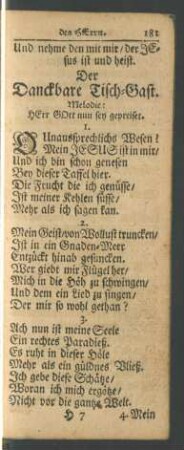 des HErrn. 181
Und nehme den mit mir / der JE-
sus ist und heist.
Der
Danckbare Tisch-Gast.
Melodie:
HErr GOtt nun sey gepreiset.
1.
O Unaussprechlichs Wesen!
Mein JESUS ist in mir /
Und ich bin schon genesen
Bey dieser Taffel hier.
Die Frucht die ich genüsse /
Ist meiner Kehlen süsse /
Mehr als ich sagen kan.
2.
Mein Geist / von Wollust truncken /
Ist in ein Gnaden-Meer
Entzückt hinab gesuncken.
Wer giebt mir Flügel her /
Mich in die Höh zu schwingen /
Und dem ein Lied zu singen /
Der mir so wohl gethan?
3.
Ach nun ist meine Seele
Ein rechtes Paradieß.
Es ruht in dieser Höle
Mehr als ein güldnes Vließ.
Ich gebe diese Schätze /
Woran ich mich ergötze /
Nicht vor die gantze Welt.
H 7 4. Mein